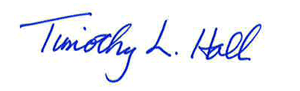 Timothy L. Hall